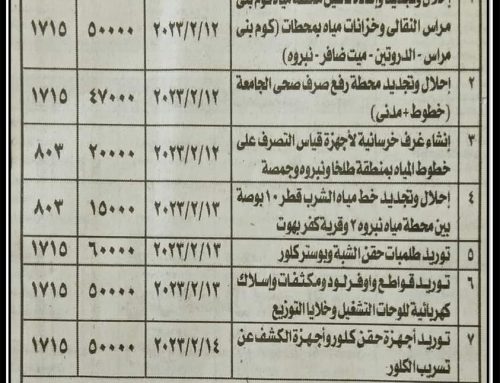 ١ إحلال وتجديد
مراس النقالى وخزانات مياه بمحطات (كوم بنى ٢٠٢٣/٢/١٢ ٥٠٠٠٠ ١٧١٥
مراس - الدروتين - ميت ضافر - نبروه)
٢ إحلال وتجديد محطة رفع صرف صحى الجامعة ٢٠٢٣/٢/١٢ ٤٧٠٠٠ ١٧١٥
(خطوط+مدنى)
٣ إنشاء غرف خرسانية لأجهزة قياس التصرف على ٢٠٢٣/٢/١٢ ٢٠٠٠٠ ٨٠٣
خطوط المياه بمنطقة طلخا ونبروه وجمصة
٤ إحلال وتجديد خط مياه الشرب قطر ١٠ بوصة ٢٠٢٣/٢/١٣ ١٥٠٠٠ ٨٠٣
بين محطة مياه نبروه ٢ وقرية كفر بهوت
٥ توريد طلمبات حقن الشبة وبوستر كلور ٢٠٢٣/٢/١٣ ٦٠٠٠٠ ١٧١٥
٦ توريد قواطع واوفرلود ومكثفات وإسلاك ٢٠٢٣/٢/١٣ ٥٠٠٠٠ ١٧١٥
كهربائية للوحات التشغيل وخلايا التوزيع
٧ توريد أجهزة حقن كلور وأجهزة الكشف عن ٢٠٢٣/٢/١٤ ٥٠٠٠٠ ١٧١٥
تسريب الكلور